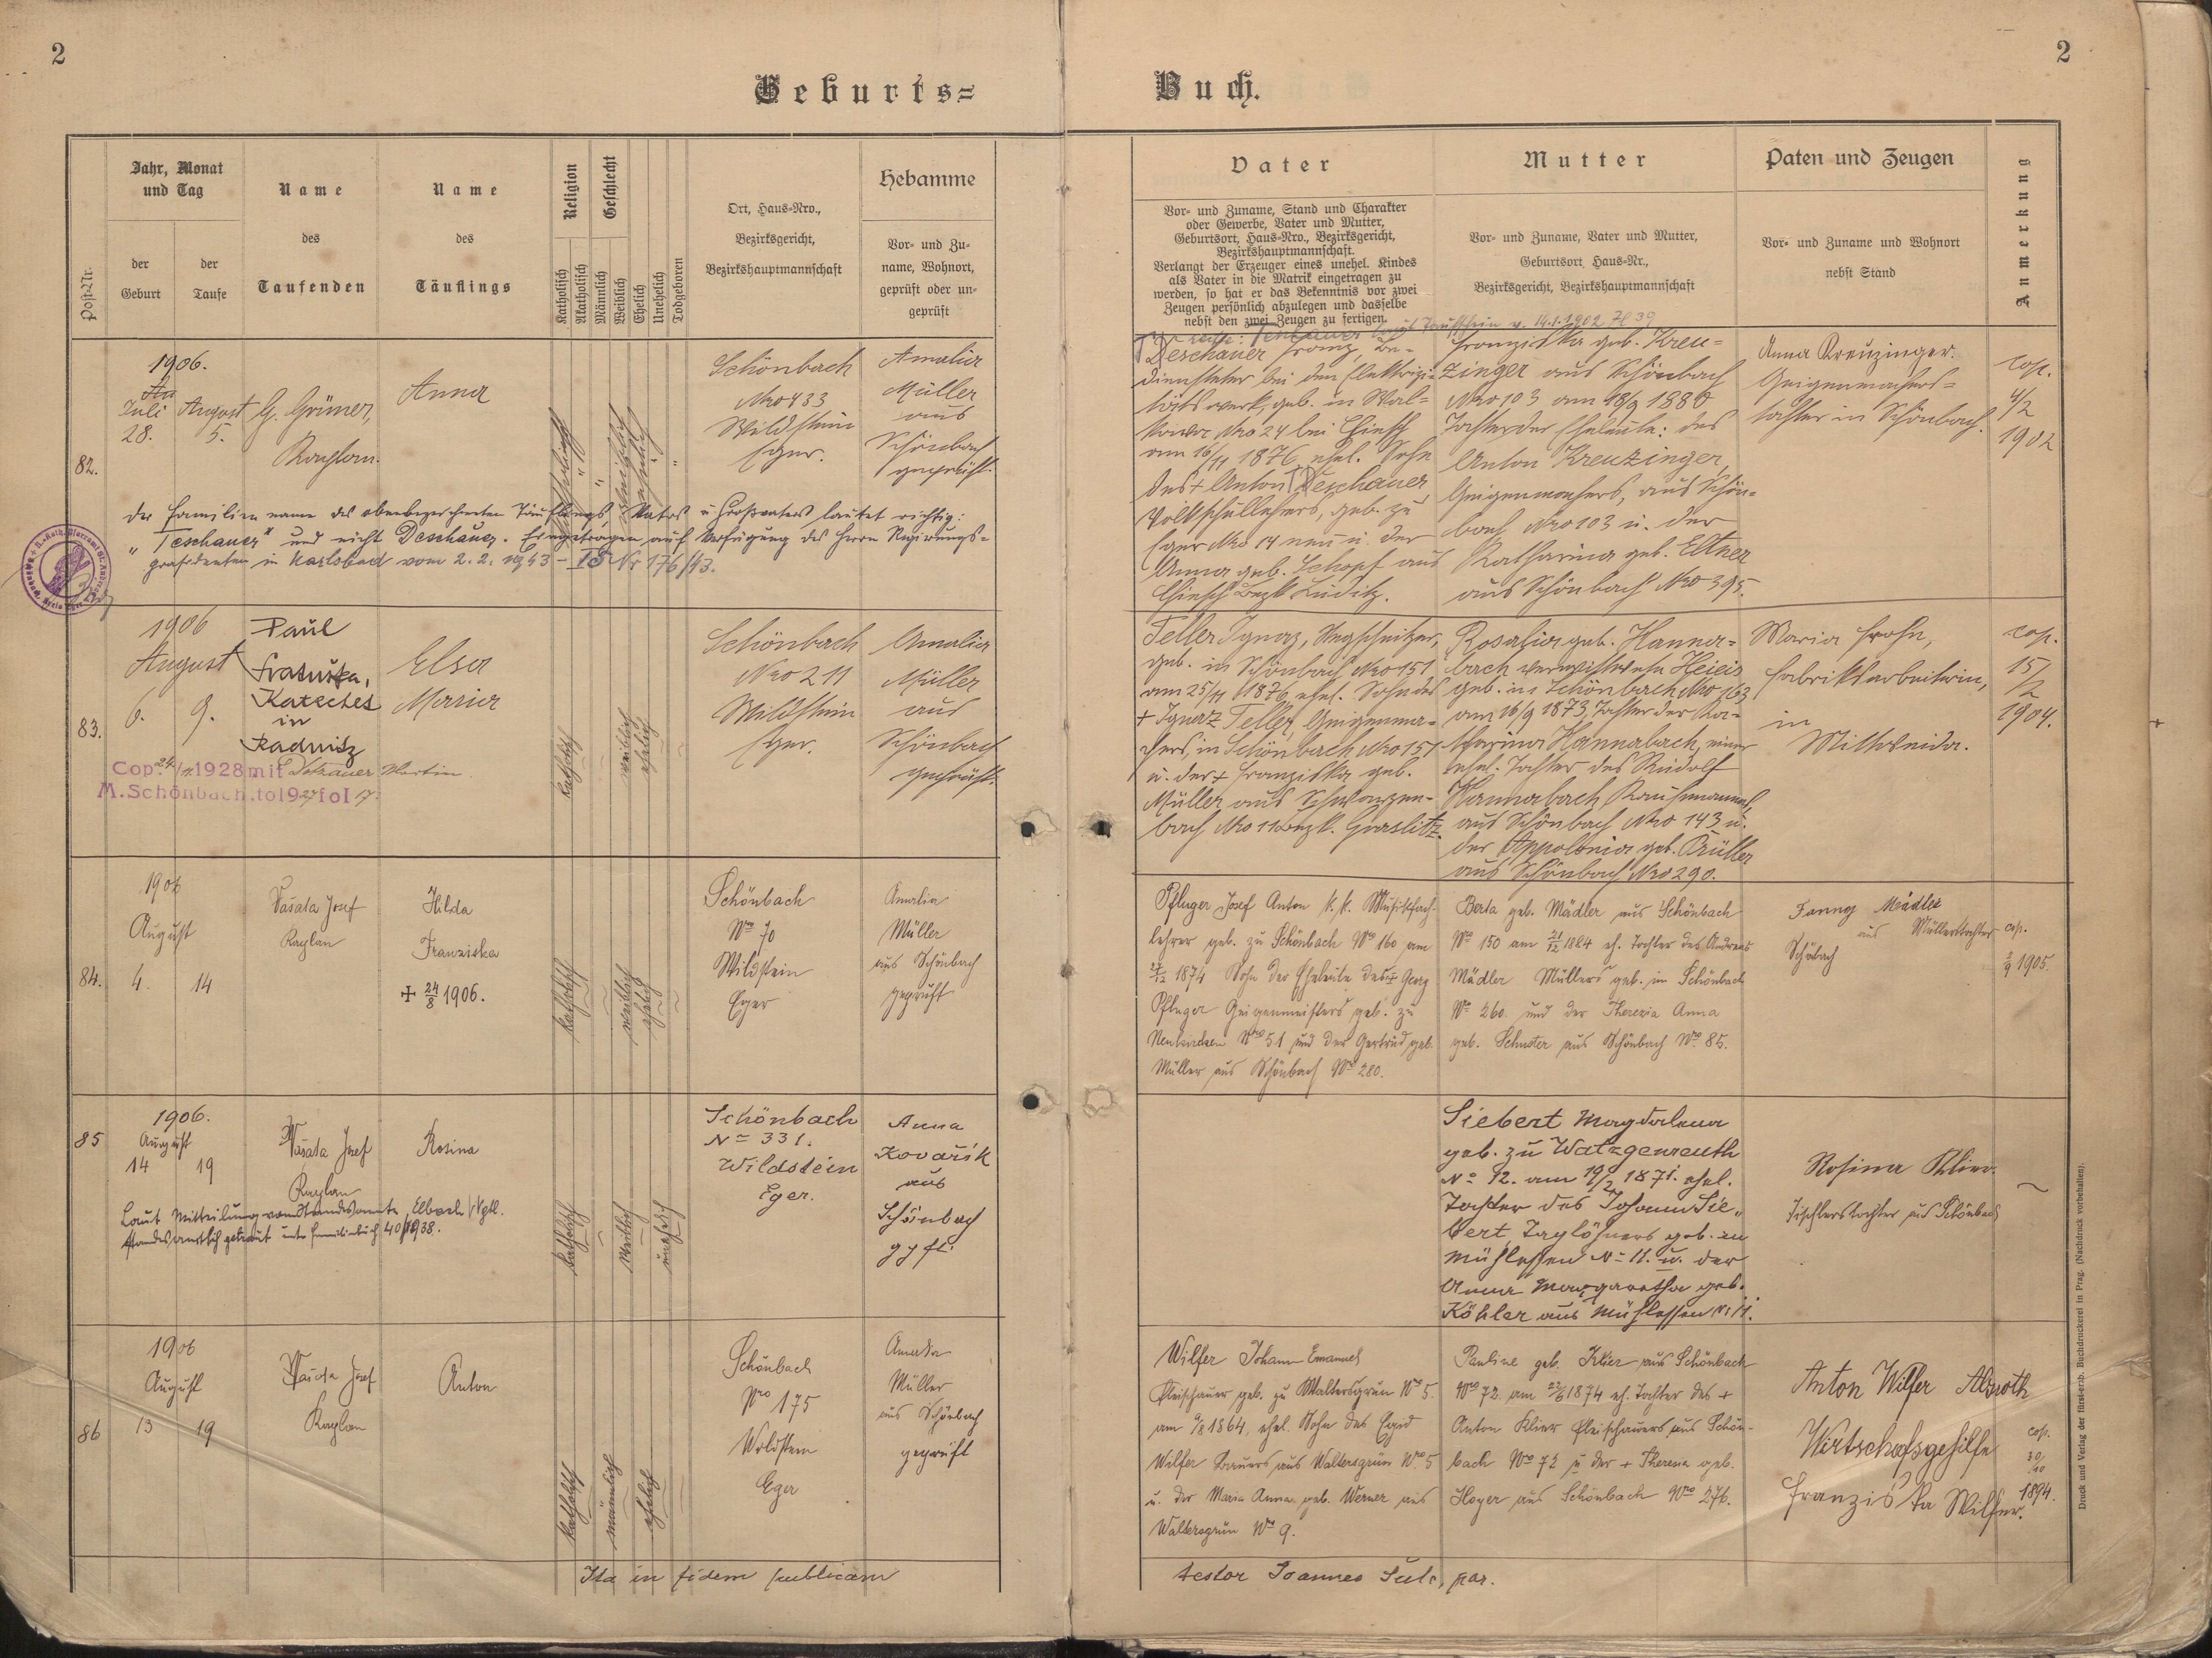 2
2
Geburts=
Buch.
Post-Nr.
Jahr, Monat
und Tag
der
Geburt
der
Taufe
Name
des
Taufenden
Name
des
Täuflings
Religion
Katholisch
Akatholisch
Geschlecht
Männlich
Weiblich
Ehelich
Unehelich
Todgeboren
Ort, Haus-Nro.,
Bezirksgericht,
Bezirkshauptmannschaft
Hebamme
Vor- und Zu-
name, Wohnort,
geprüft oder un-
geprüft
Vater
Vor- und Zuname, Stand und Charakter
oder Gewerbe, Vater und Mutter,
Geburtsort, Haus-Nro., Bezirksgericht,
Bezirkshauptmannschaft.
Verlangt der Erzeuger eines unehel. Kindes
als Vater in die Matrik eingetragen zu
werden, so hat er das Bekenntnis vor zwei
Zeugen persönlich abzulegen und dasselbe
nebst den zwei Zeugen zu fertigen.
Mutter
Vor- und Zuname, Vater und Mutter,
Geburtsort, Haus-Nr.,
Bezirksgericht, Bezirkshauptmannschaft
Paten und Zeugen
Vor- und Zuname und Wohnort
nebst Stand
Anmerkung
82.
1906.
Juli
28.
August
5.
G. Grüner,
Kaplan.
Anna
Schönbach
Nro 433
Wildstein
Eger.
Amalia
Müller
aus
Schönbach
geprüft.
Teschauer laut Taufschein v. 14.1.1902 Zl 39
Deschauer Franz, Be-
diensteter bei dem Elektrizi-
tätswerk, geb. in Wal-
kowa Nro 24 bei Chiesch
am 16/11 1876, ehel. Sohn
des + Anton Deschauer
Volksschullehrers, geb. zu
Eger Nro 14 neu u. der
Anna geb. Schopf aus
Chiesch Bezk. Luditz.
Franziska geb. Kreu-
zinger aus Schönbach
Nro 103 am 18/9 1880
Tochter der Eheleute: des
Anton Kreuzinger,
Geigenmachers, aus Schön-
bach Nro 103 u. der
Katharina geb. Eltner
aus Schönbach Nro 395.
Anna Kreuzinger.
Geigenmachers-
tochter in Schönbach.
cop.
4/2
1902
der Familienname des obenbezeichneten Täuflings, Vaters u. Großvaters lautet richtig:
"Teschauer" und nicht Deschauer. Eingetragen auf Verfügung des Herrn Regierungs-
präsidenten in Karlsbad vom 2.2.1943 - I5 Nr 176/43.
83.
1906
August
6.
9.
Paul
Fratuska,
Katechet
in
Radnitz
Elsa
Maria
katholisch
weiblich
ehelich
Schönbach
Nro 211
Wildstein
Eger.
Amalia
Müller
aus
Schönbach
geprüft.
Teller Ignaz, Stegschnitzer,
geb. in Schönbach Nro 151
am 25/11 1876 ehel. Sohn des
+ Ignaz Teller, Geigenma-
chers, in Schönbach Nro 151
u. der + Franziska geb.
Müller aus Schwarzen-
bach Nro 11 Bezk. Graslitz.
Rosalia geb. Hanna-
bach verwitwete Heieis
geb. in Schönbach Nro 163
am 16/9 1873, Tochter der Ka-
tharina Hannabach, einer
unehel. Tochter des Rudolf
Hannabach, Kaufmannes,
aus Schönbach Nro 143 u.
der Appolonia geb. Brüller
aus Schönbach Nro 290.
Maria Frohn,
Fabriksarbeiterin,
in
Mittweida.
cop.
15/
/2
1904.
Cop. 24/11. 1928 mit Dotzauer Martin.
M. Schönbach. tol 9 fol 17.
84.
1906
August
4.
14
Vašata Josef
Kaplan
Hilda
Franziska
+ 24/8 1906.
katholisch
weiblich
ehelich
Schönbach
Nro 70
Wildstein
Eger
Amalia
Müller
aus Schönbach
geprüft
Pfluger Josef Anton k.k. Musikfach-
lehrer geb. zu Schönbach Nro 160 am
27/12 1874 Sohn der Eheleute des + Georg
Pfluger Geigenmeisters geb. zu
Neukirchen Nro 51 und der Gertrud geb.
Müller aus Schönbach Nro 280.
Berta geb. Mädler aus Schönbach
Nro 150 am 21/12 1884 eh. Tochter des Andreas
Mädler Müllers geb. in Schönbach
Nro 260. und der Theresia Anna
geb. Schuster aus Schönbach Nro. 85.
Fanny Mädler
aus Müllerstochter
Schönbach
cop.
2/9 1905.
85
1906.
August
14
19
Vašata Josef
Kaplan
Rosina
katholisch
weiblich
unehelich
Schönbach
No 331.
Wildstein
Eger.
Anna
Kovařik
aus
Schönbach
gepft.
Siebert Magdalena
geb. zu Watzgenreuth
No 12. am 19/2 1871. ehel.
Tochter des Johann Sie-
bert, Taglöhners geb. in
Mühlessen No 11. u. der
Anna Margaretha geb.
Köhler aus Mühlessen Nr. 11.
Rosina Klier.
Tischlerstochter aus Schönbach
Laut Mitteilung vom Standesamte Elbach / Vgtl.
standesamtlich getraut unter Familienbuch 40/1938.
86
1906
August
13
19
Vašata Josef
Kaplan
Anton
katholisch
männlich
ehelich
Schönbach
Nro 175
Wildstein
Eger
Amalia
Müller
aus Schönbach
geprüft
Wilfer Johann Emanuel
Fleischauer geb. zu Waltersgrün Nro 5.
am 9/8 1864, ehel. Sohn des Egid
Wilfer Bauers aus Waltersgrün Nro 5
u. der Maria Anna geb. Werner aus
Waltersgrün Nro 9.
Pauline geb. Klier aus Schönbach
Nro 72. am 22/6 1874 eh. Tochter des +
Anton Klier Fleischauers aus Schön-
bach Nro 72 u. der + Theresia geb.
Hoyer aus Schönbach Nro 276.
Anton Wilfer Absroth
Wirtschaftsgehilfe
Franziska Wilfer.
cop.
30/
/10
1894.
Ita in fidem publicam
testor Joannes Sulc, par.
Druck und Verlag der fürst-erzb. Buchdruckerei in Prag. (Nachdruck vorbehalten).